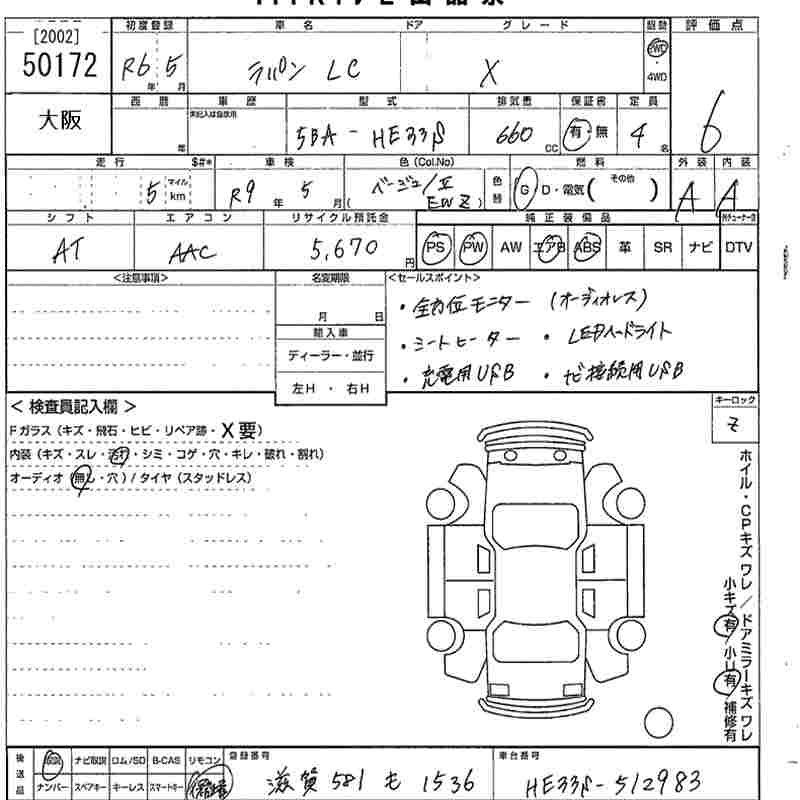 [2002]
50172
大阪
初度登録
R6 年 5 月
車名
ラパン LC
ドア
グレード
X
駆動
2WD・4WD
評価点
6
西暦
年
車歴
未記入は自家用
型式
5BA-HE33S
排気量
660 CC
保証書
有・無
定員
4 名
走行
5 マイル km
$#*
車検
R9 年 5 月
色 (Col.No)
(ベージュ/II EWZ)
色替
燃料
G D・電気 (その他)
外装
A
内装
A
シフト
AT
エアコン
AAC
リサイクル預託金
5,670 円
純正装備品
PS PW AW エアB ABS 革 SR ナビ DTV
<注意事項>
名変期限
月 日
輸入車
ディーラー・並行
左H・右H
<セールスポイント>
・全方位モニター (オーディオレス)
・シートヒーター ・LEDヘッドライト
・充電用USB ・ナビ接続用USB
キーロック
< 検査員記入欄 >
Fガラス (キズ・飛石・ヒビ・リペア跡・X要)
内装 (キズ・スレ・汚れ・シミ・コゲ・穴・キレ・破れ・割れ)
オーディオ (無し・穴) / タイヤ (スタッドレス)
ホイル・CPキズワレ/ドアミラーキズワレ
小キズ有/小U有/補修有
後送品
取説 ナビ取説 ロム/SD B-CAS リモコン
ナンバー スペアキー キーレス スマートキー
登録番号
滋賀 581 も 1536
車台番号
HE33S-512983